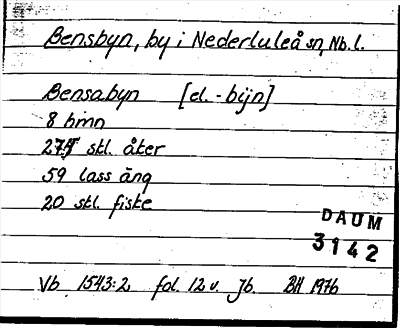 Bensbyn, by i Nederluleå sn, Nb. l.
Bensabyn [el. -bijn]
8 hmn
stl. åker
59 lass äng
20 stl. fiske
DAUM
3142
Vb 1543:2 fol. 12 v. Jb. BH 1976